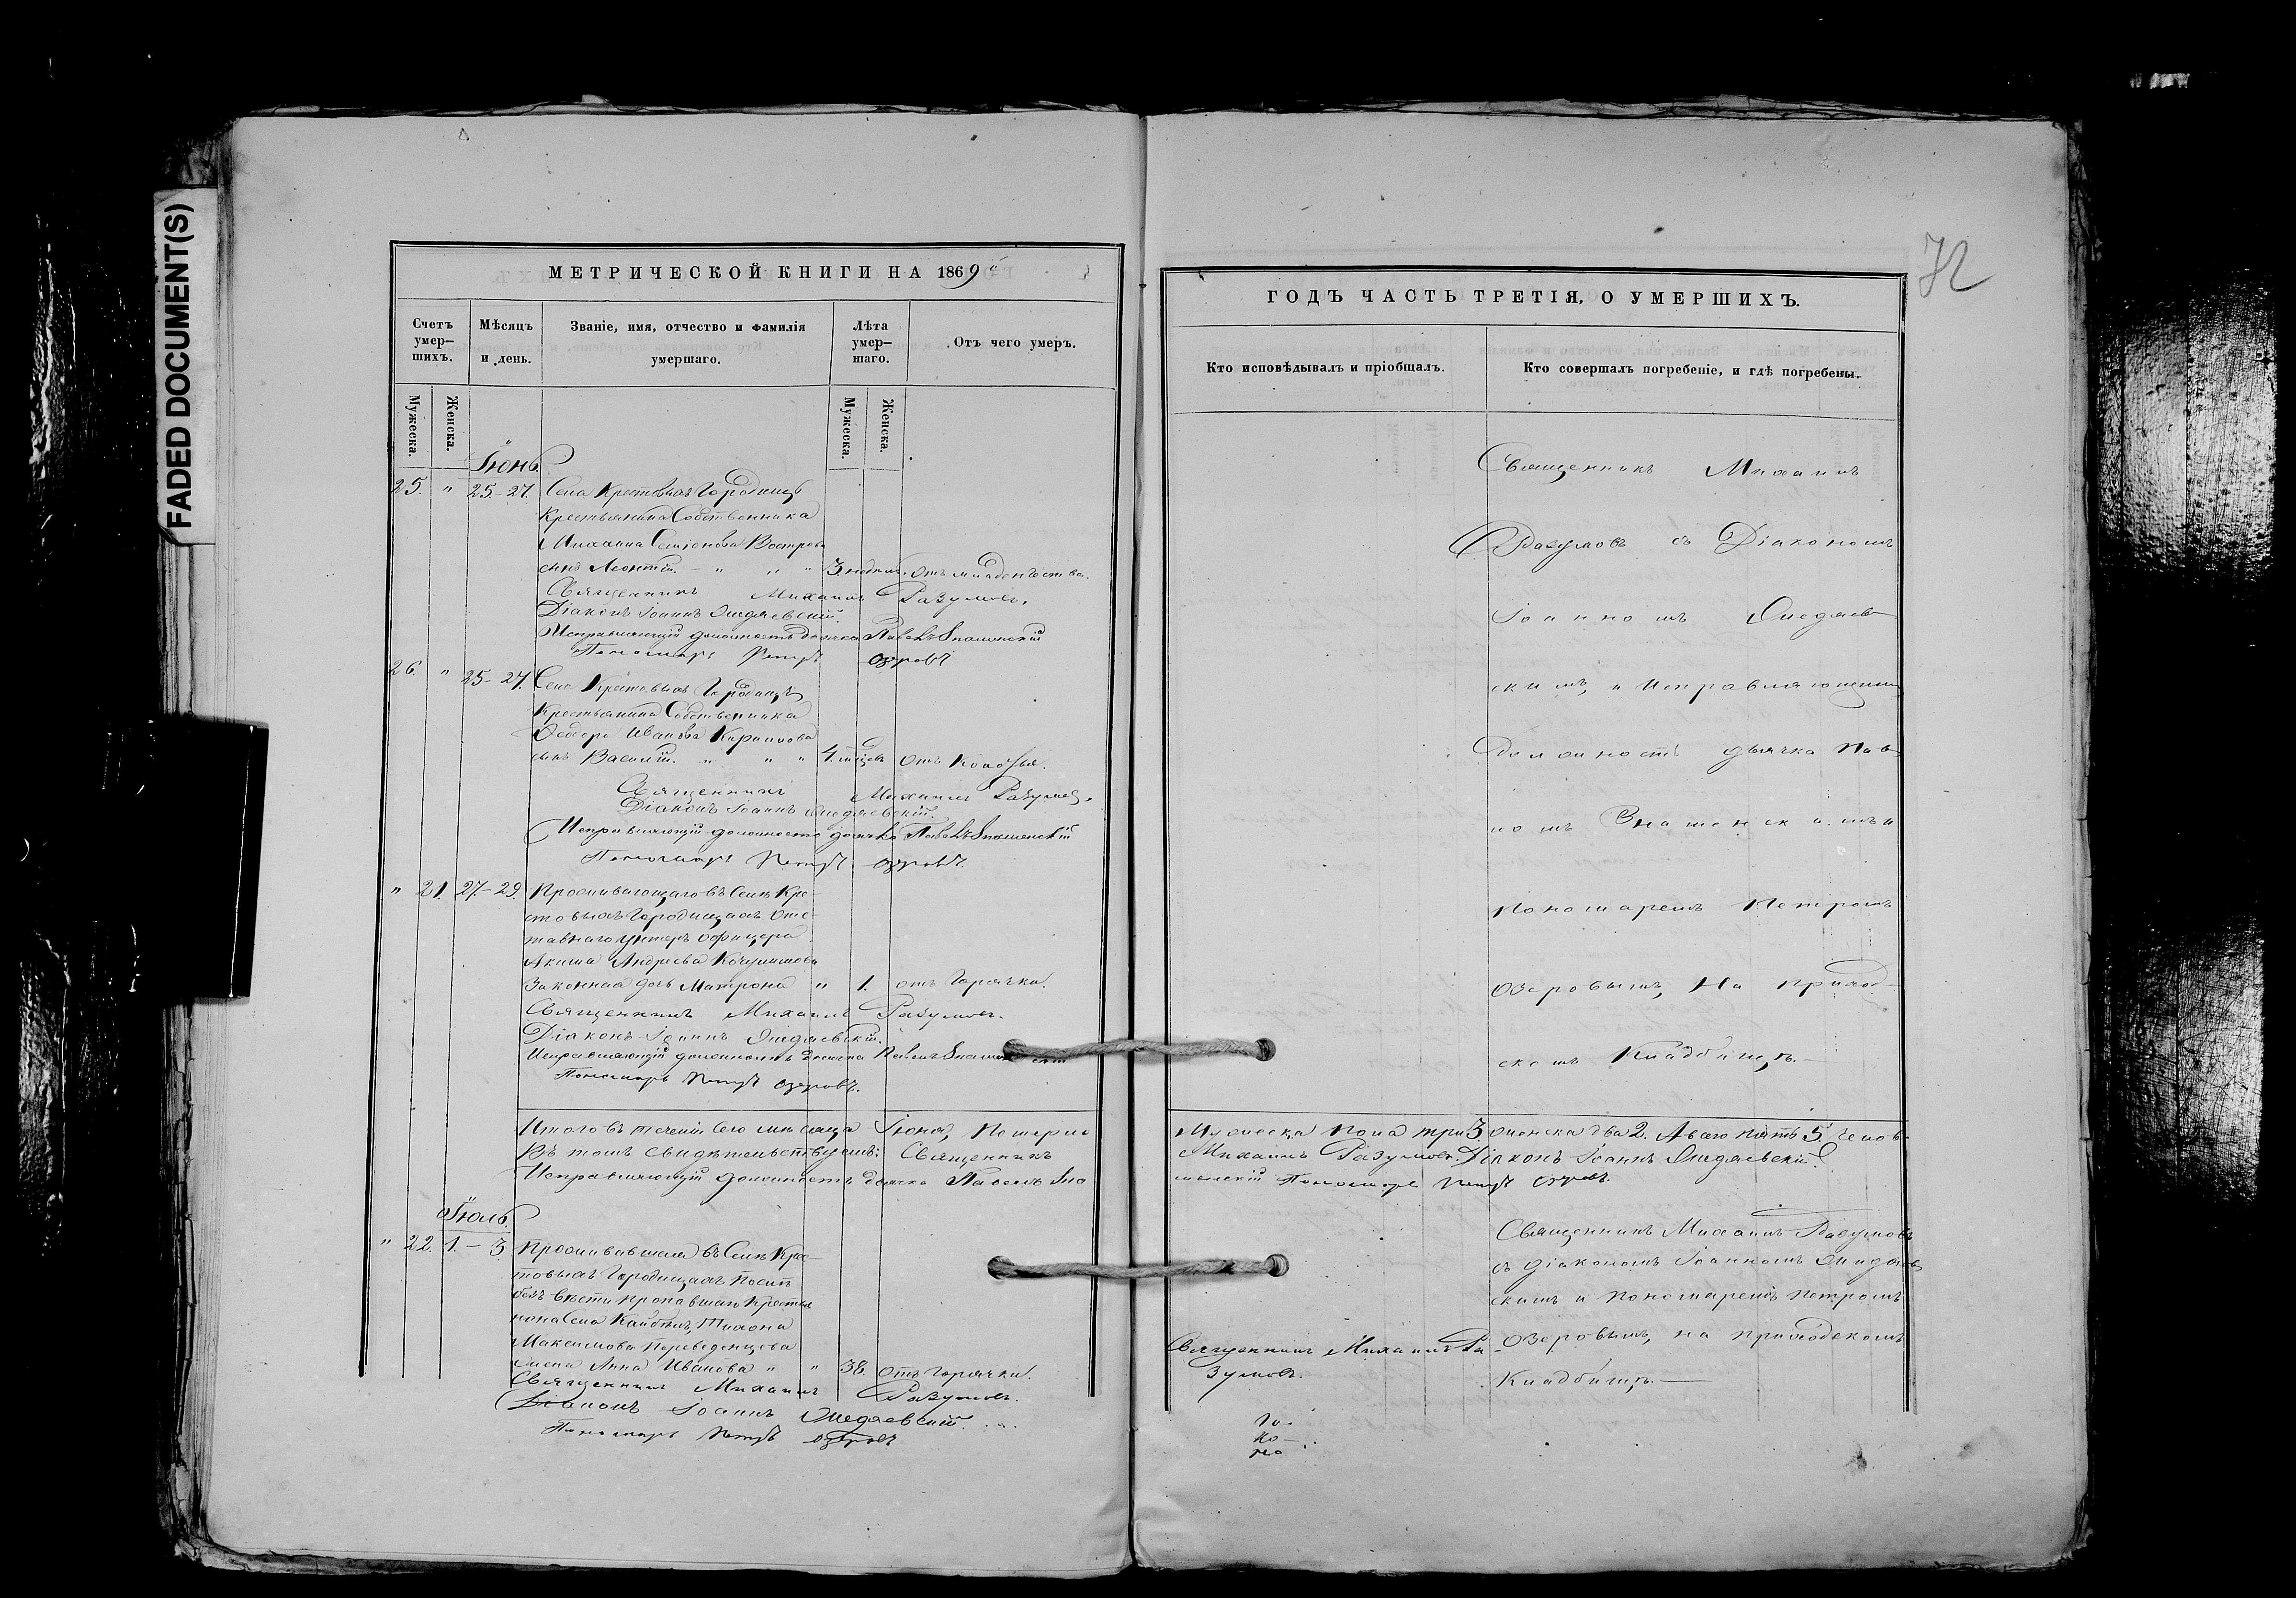 FADED DOCUMENT(S)
МЕТРИЧЕСКОЙ КНИГИ НА 1869
Счетъ умер-шихъ.
Мѣсяцъ и день.
Званіе, имя, отчество и фамилія умершаго.
Лѣта умер-шаго.
Отъ чего умеръ.
Мужеска.
Женска.
Мужеска.
Женска.
Іюнь.
25. " 25-27. Села Крестовыхъ Городищъ
Крестьянина Собственника
Михаила Семіонова Вострова
сынъ Леонтій. - " " " 3 недѣль. Отъ младенчества.
Священникъ Михаилъ Разумовъ.
Діаконъ Іоаннъ
Исправляющій должность дьячка Павелъ Знаменскій
Пономарь Петръ Озеровъ
26. " 25-27. Села Крестовыхъ Городищъ
Крестьянина Собственника
Ѳедора Иванова Кирилова
сынъ Василій. " " " 4. мѣсяцевъ Отъ
Священникъ Михаилъ Разумовъ.
Діаконъ Іоаннъ
Исправляющій должность дьячка Павелъ Знаменскій
Пономарь Петръ Озеровъ.
" 21. 27-29. Проживающаго въ Селѣ Кре-
стовыхъ Городищахъ Отс-
тавнаго унтеръ офицера
Акима Андреева
Законная дочь Матрона " 1. отъ Горячки.
Священникъ Михаилъ Разумовъ.
Діаконъ Іоаннъ
Исправляющій должность Дьячка Павелъ
Пономарь Петръ Озеровъ.
Итого въ теченіи сего мѣсяца Іюня, Померло
Въ томъ свидѣтельствуемъ: Священникъ
Исправляющій должность дьячка Павелъ Зна
Іюль.
" 22. 1.-3 Проживавшая въ Селѣ Кре-
стовыхъ Городищахъ Послѣ
безъ вѣсти пропавшаго Крестья
нина Села Тихона
Максимова Переведенцева
жена Анна Иванова " " 38. отъ горячки.
Священникъ Михаилъ Разумовъ.
Діаконъ Іоаннъ
Пономарь Петръ Озеровъ
72
ГОДЪ ЧАСТЬ ТРЕТІЯ, О УМЕРШИХЪ.
Кто исповѣдывалъ и пріобщалъ.
Кто совершалъ погребеніе, и гдѣ погребены.
Священникъ Михаилъ
Разумовъ съ Діакономъ
Іоанномъ
скимъ, и Исправляющимъ
Должность дьячка Пав-
ломъ Знаменскимъ и
Пономаремъ Петромъ
Озеровымъ, На приход-
скомъ Кладбищѣ.-
Мужеска пола три 3, женска два 2. А всего пять 5. Челов-
Михаилъ Разумовъ. Діаконъ Іоаннъ
менскій Пономарь Петръ Озеровъ.
Священникъ Михаилъ Разумовъ
съ діакономъ Іоанномъ
скимъ и Пономаремъ Петромъ
Озеровымъ, на приходскомъ
Кладбищѣ.-
Священникъ Михаилъ Ра-
зумовъ.